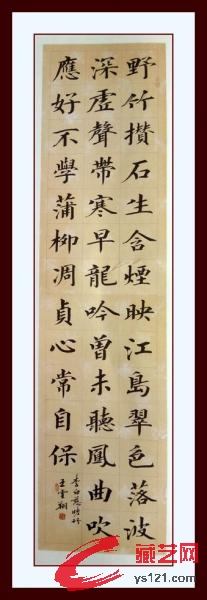 野竹攢石生含煙映江島翠色落波
深虛聲帶寒早龍吟曾未聽鳳曲吹
應好不學蒲柳凋貞心常自保
李白慈姥竹
王雪翔
藏艺网
ys121.com